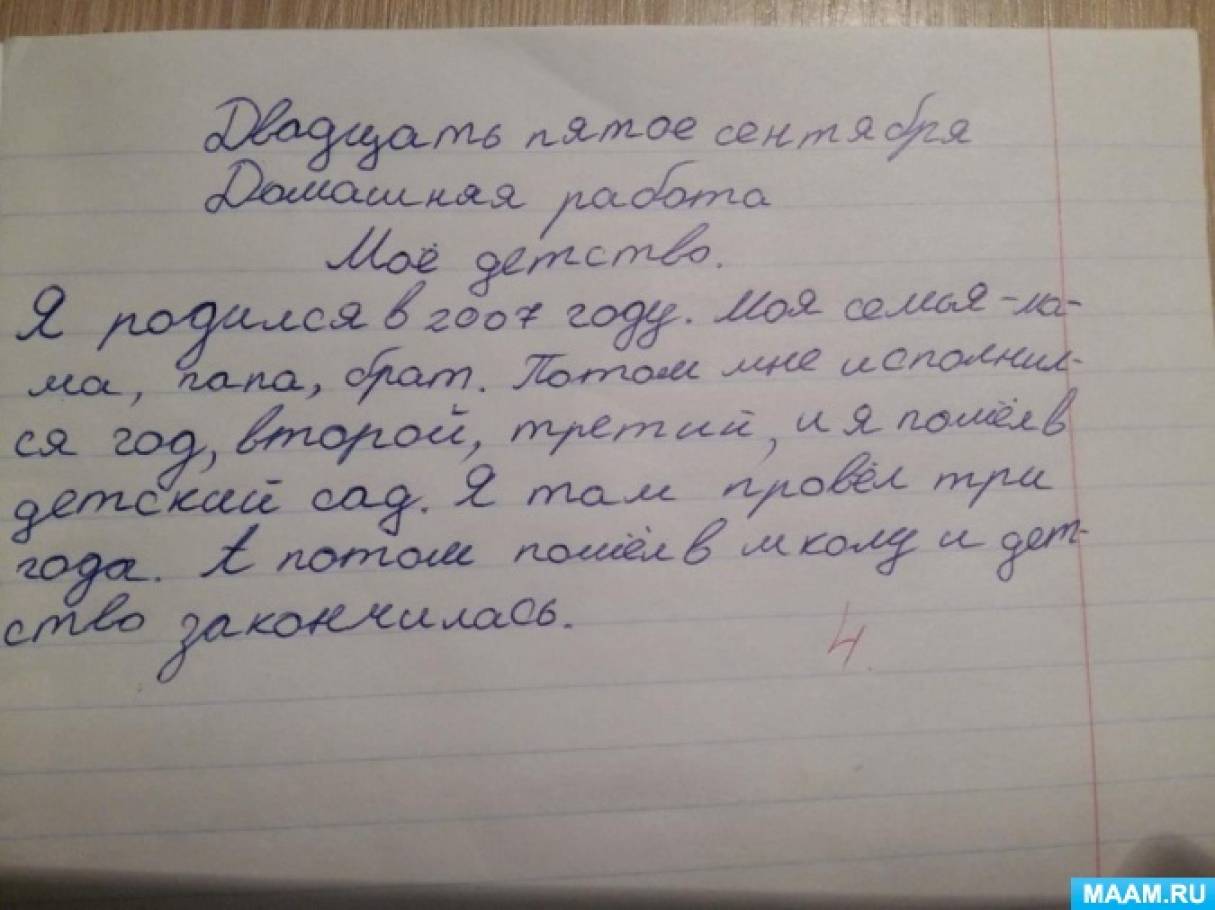 Двадцать пятое сентября
Домашняя работа
Моё детство.
Я родился в 2007 году. Моя семья - ма-
ма, папа, брат. Потом мне исполнил-
ся год, второй, третий, и я пошёл в
детский сад. Я там провёл три
года. А потом пошёл в школу и дет-
ство закончилась.
4.
MAAM.RU